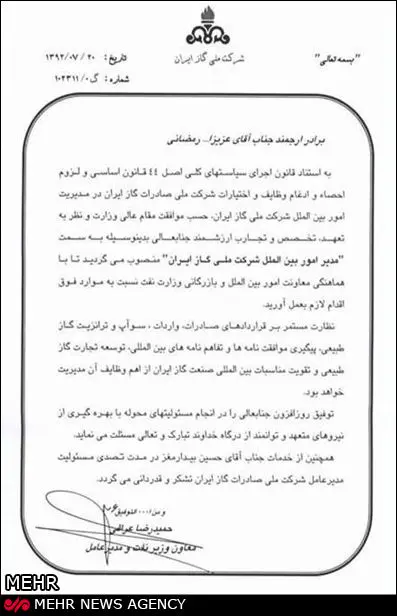 "بسمه تعالی"
شرکت ملی گاز ایران
تاریخ: ۱۳۹۲/۰۷/۲۰
شماره: گ/۰-۱۰۲۳۱۱
برادر ارجمند جناب آقای عزیزا... رمضانی
به استناد قانون اجرای سیاستهای کلی اصل ۴۴ قانون اساسی و لزوم
احصاء و ادغام وظایف و اختیارات شرکت ملی صادرات گاز ایران در مدیریت
امور بین الملل شرکت ملی گاز ایران، حسب موافقت مقام عالی وزارت و نظر به
تعهد، تخصص و تجارب ارزشمند جنابعالی بدینوسیله به سمت
"مدیر امور بین الملل شرکت ملی گاز ایران" منصوب می گردید تا با
هماهنگی معاونت امور بین الملل و بازرگانی وزارت نفت نسبت به موارد فوق
اقدام لازم بعمل آورید.
نظارت مستمر بر قراردادهای صادرات، واردات ، سوآپ و ترانزیت گاز
طبیعی، پیگیری موافقت نامه ها و تفاهم نامه های بین المللی، توسعه تجارت گاز
طبیعی و تقویت مناسبات بین المللی صنعت گاز ایران از اهم وظایف آن مدیریت
خواهد بود.
توفیق روزافزون جنابعالی را در انجام مسئولیتهای محوله با بهره گیری از
نیروهای متعهد و توانمند از درگاه خداوند تبارک و تعالی مسئلت می نماید.
همچنین از خدمات جناب آقای حسین بیدارمغز در مدت تصدی مسئولیت
مدیرعامل شرکت ملی صادرات گاز ایران تشکر و قدردانی می گردد.
و من ا... التوفیق
حمیدرضا عراقی
معاون وزیر نفت و مدیرعامل
MEHR
MEHR NEWS AGENCY